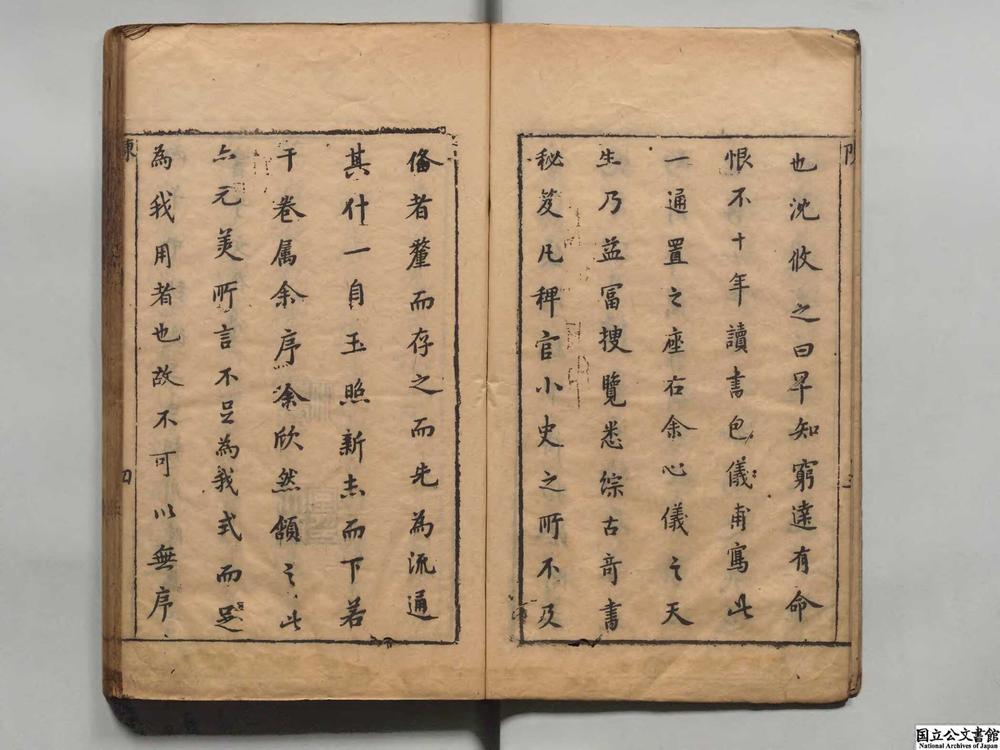 也沈攸之曰早知窮達有命
恨不十年讀書包儀甫寫此
一通置之座右余心儀之天
生乃益冨搜覽悉綜古奇書
秘笈凡稗官小史之所不及
偹者釐而存之而先為流通
其什一自玉照新志而下若
干卷属余序余欣然頷之此
亦元美所言不足為我式而足
為我用者也故不可以無序
陳
四
国立公文書館
National Archives of Japan